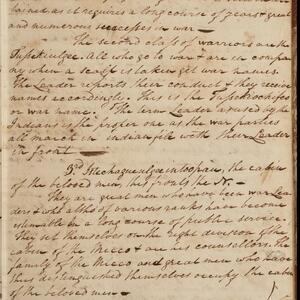 tained as it requires a long course of years & great
and numerous successes in war —
The second class of warriors are the
Tusseekiulgee. All who go to war & are in compa
ny when a scalp is taken get war names.
The Leader reports their conduct & they receive
names accordingly. This is the
or war name. The term Leader as used by the
Indians is the proper one as the war parties
all march in indian file with their Leader
in front —
3rd. the cabin
of the beloved men, this fronts the N. —
They are great men who have been war Lea
ders & who altho of various ranks have become
estimable in a long course of public service.
They sit themselves on the right division of the
Cabin of the Micco & are his counsellors. The
family of the Micco and great men who have
thus distinguished themselves occupy the cabin
of the beloved men —